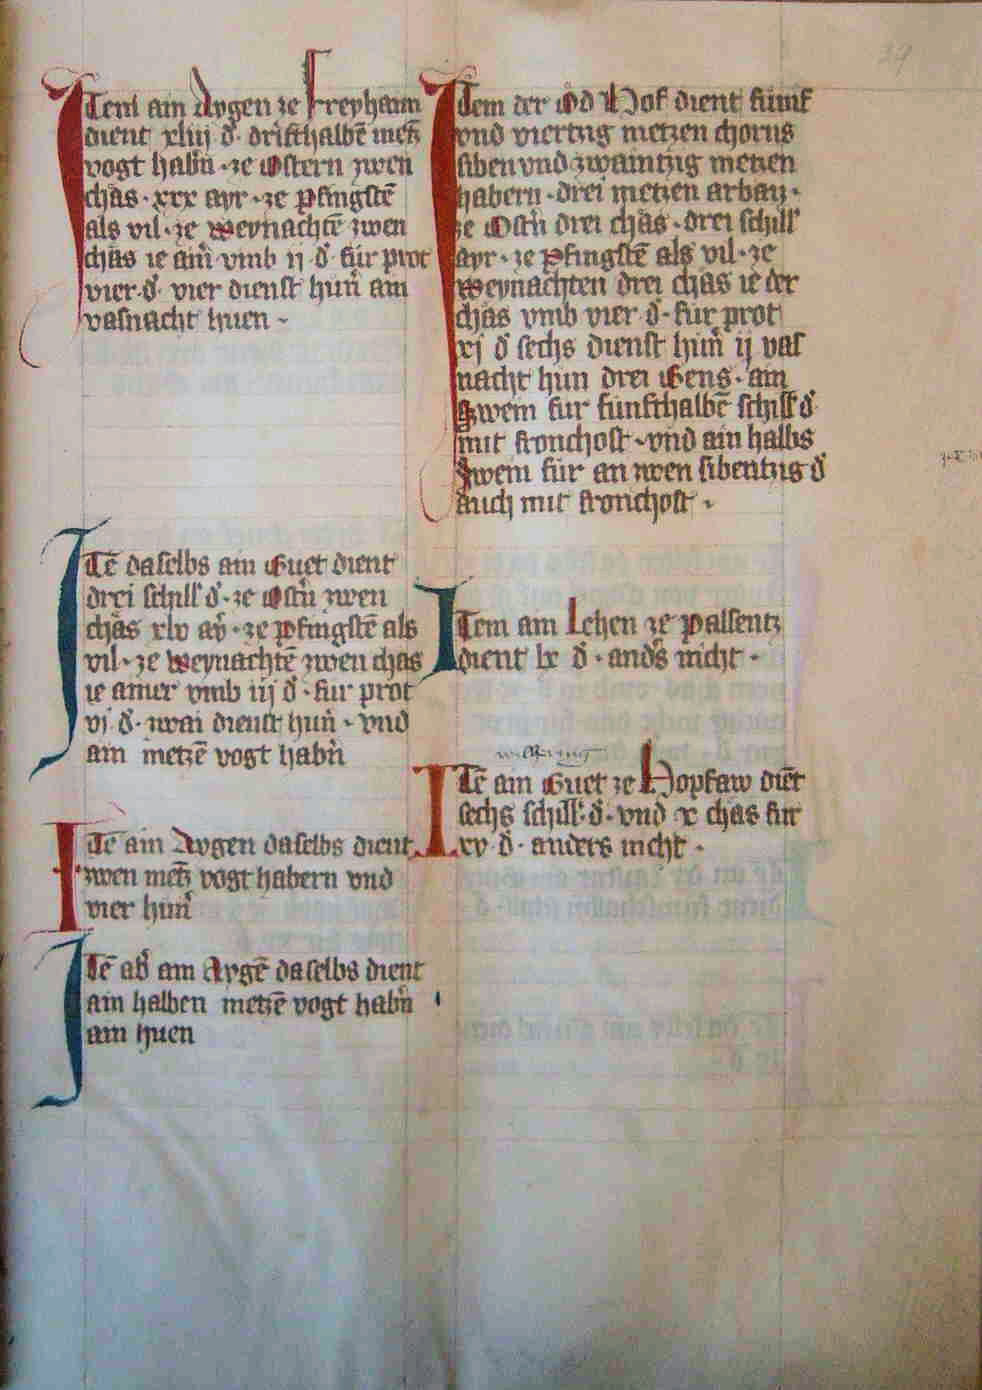 Item ain Aygen ze Freyhaim
dient xliij d̵. drifthalbē metz̄
vogt habn̄ · ze Ostern zwen
chäs · xxx ayr · ze Pfingstē
als vil · ze weynachtē zwen
chäs ie ain̄ vmb ij · d̵. für prot
vier · d̵. vier dienst hun̄ ain
vasnacht huen ·
Itē daselbs ain Guet dient
drei schill d̵. ze Ostn̄ zwen
chäs xlv ay̆ · ze Pfingstē als
vil · ze weynachtē zwen chas
ie ainer vmb iij d̵ · fur prot
vj · d̵. zwai dienst hun̄ · vnd
ain metzē vogt habn̄
Itē ain Aygen daselbs dient
zwen metz̄ vogt habern vnd
vier hun̄
Itē ab̄ ain Aygē daselbs dient
ain halben metzē vogt habn̄
ain huen
Item der Öd Hof dient fúmf
vnd viertzig metzen chorns
siben vnd zwaintzig metzen
habern · drei metzen arbaiz ·
ze Ostn̄ drei chäs · drei schill
ayr · ze Pfingstē als vil · ze
Weynachten drei chäs ie der
chäs vmb vier · d̵. fur prot
xj d̵ sechs dienst hun̄ ij vas
nacht hun drei Gens · ain
Swein fur funfthalbē schill d̵
mit fronchost · vnd ain halbs
Swein für an zwen sibentzig d̵
auch mit fronchost ·
Item ain Lehen ze Palsentz
dient lx d̵ · ands̄ nicht ·
Itē ain Guet ze Hopfaw diēt
sechs schill d̵. vnd x chas fur
xv · d̵ · anders nicht ·